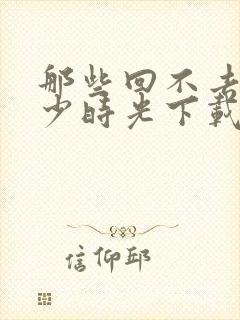 那些回不去
少時光下載
信仰邱